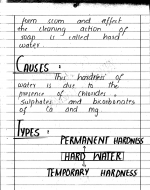 form scum and affect
the cleaning action of
soap is called hard
water.
CAUSES :
This 'hardness' of
water is due to the
presence of chlorides,
sulphates and bicarbonates
of Ca and Mg.
TYPES :
PERMANENT HARDNESS
HARD WATER
TEMPORARY HARDNESS